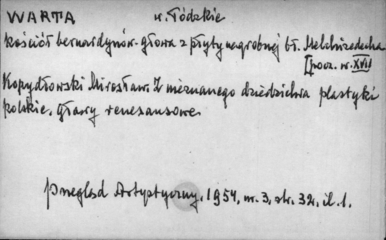 WARTA w. Łódzkie
kościół bernardynów - głowa z płyty nagrobnej bł. Melchizedecha
[pocz. w. XVII
Kopydłowski Mirosław. Z nieznanego dziedzictwa plastyki
polskie. Głowy renesansowe.
Przegląd Artystyczny, 1954, nr. 3, str. 32, il. 1.